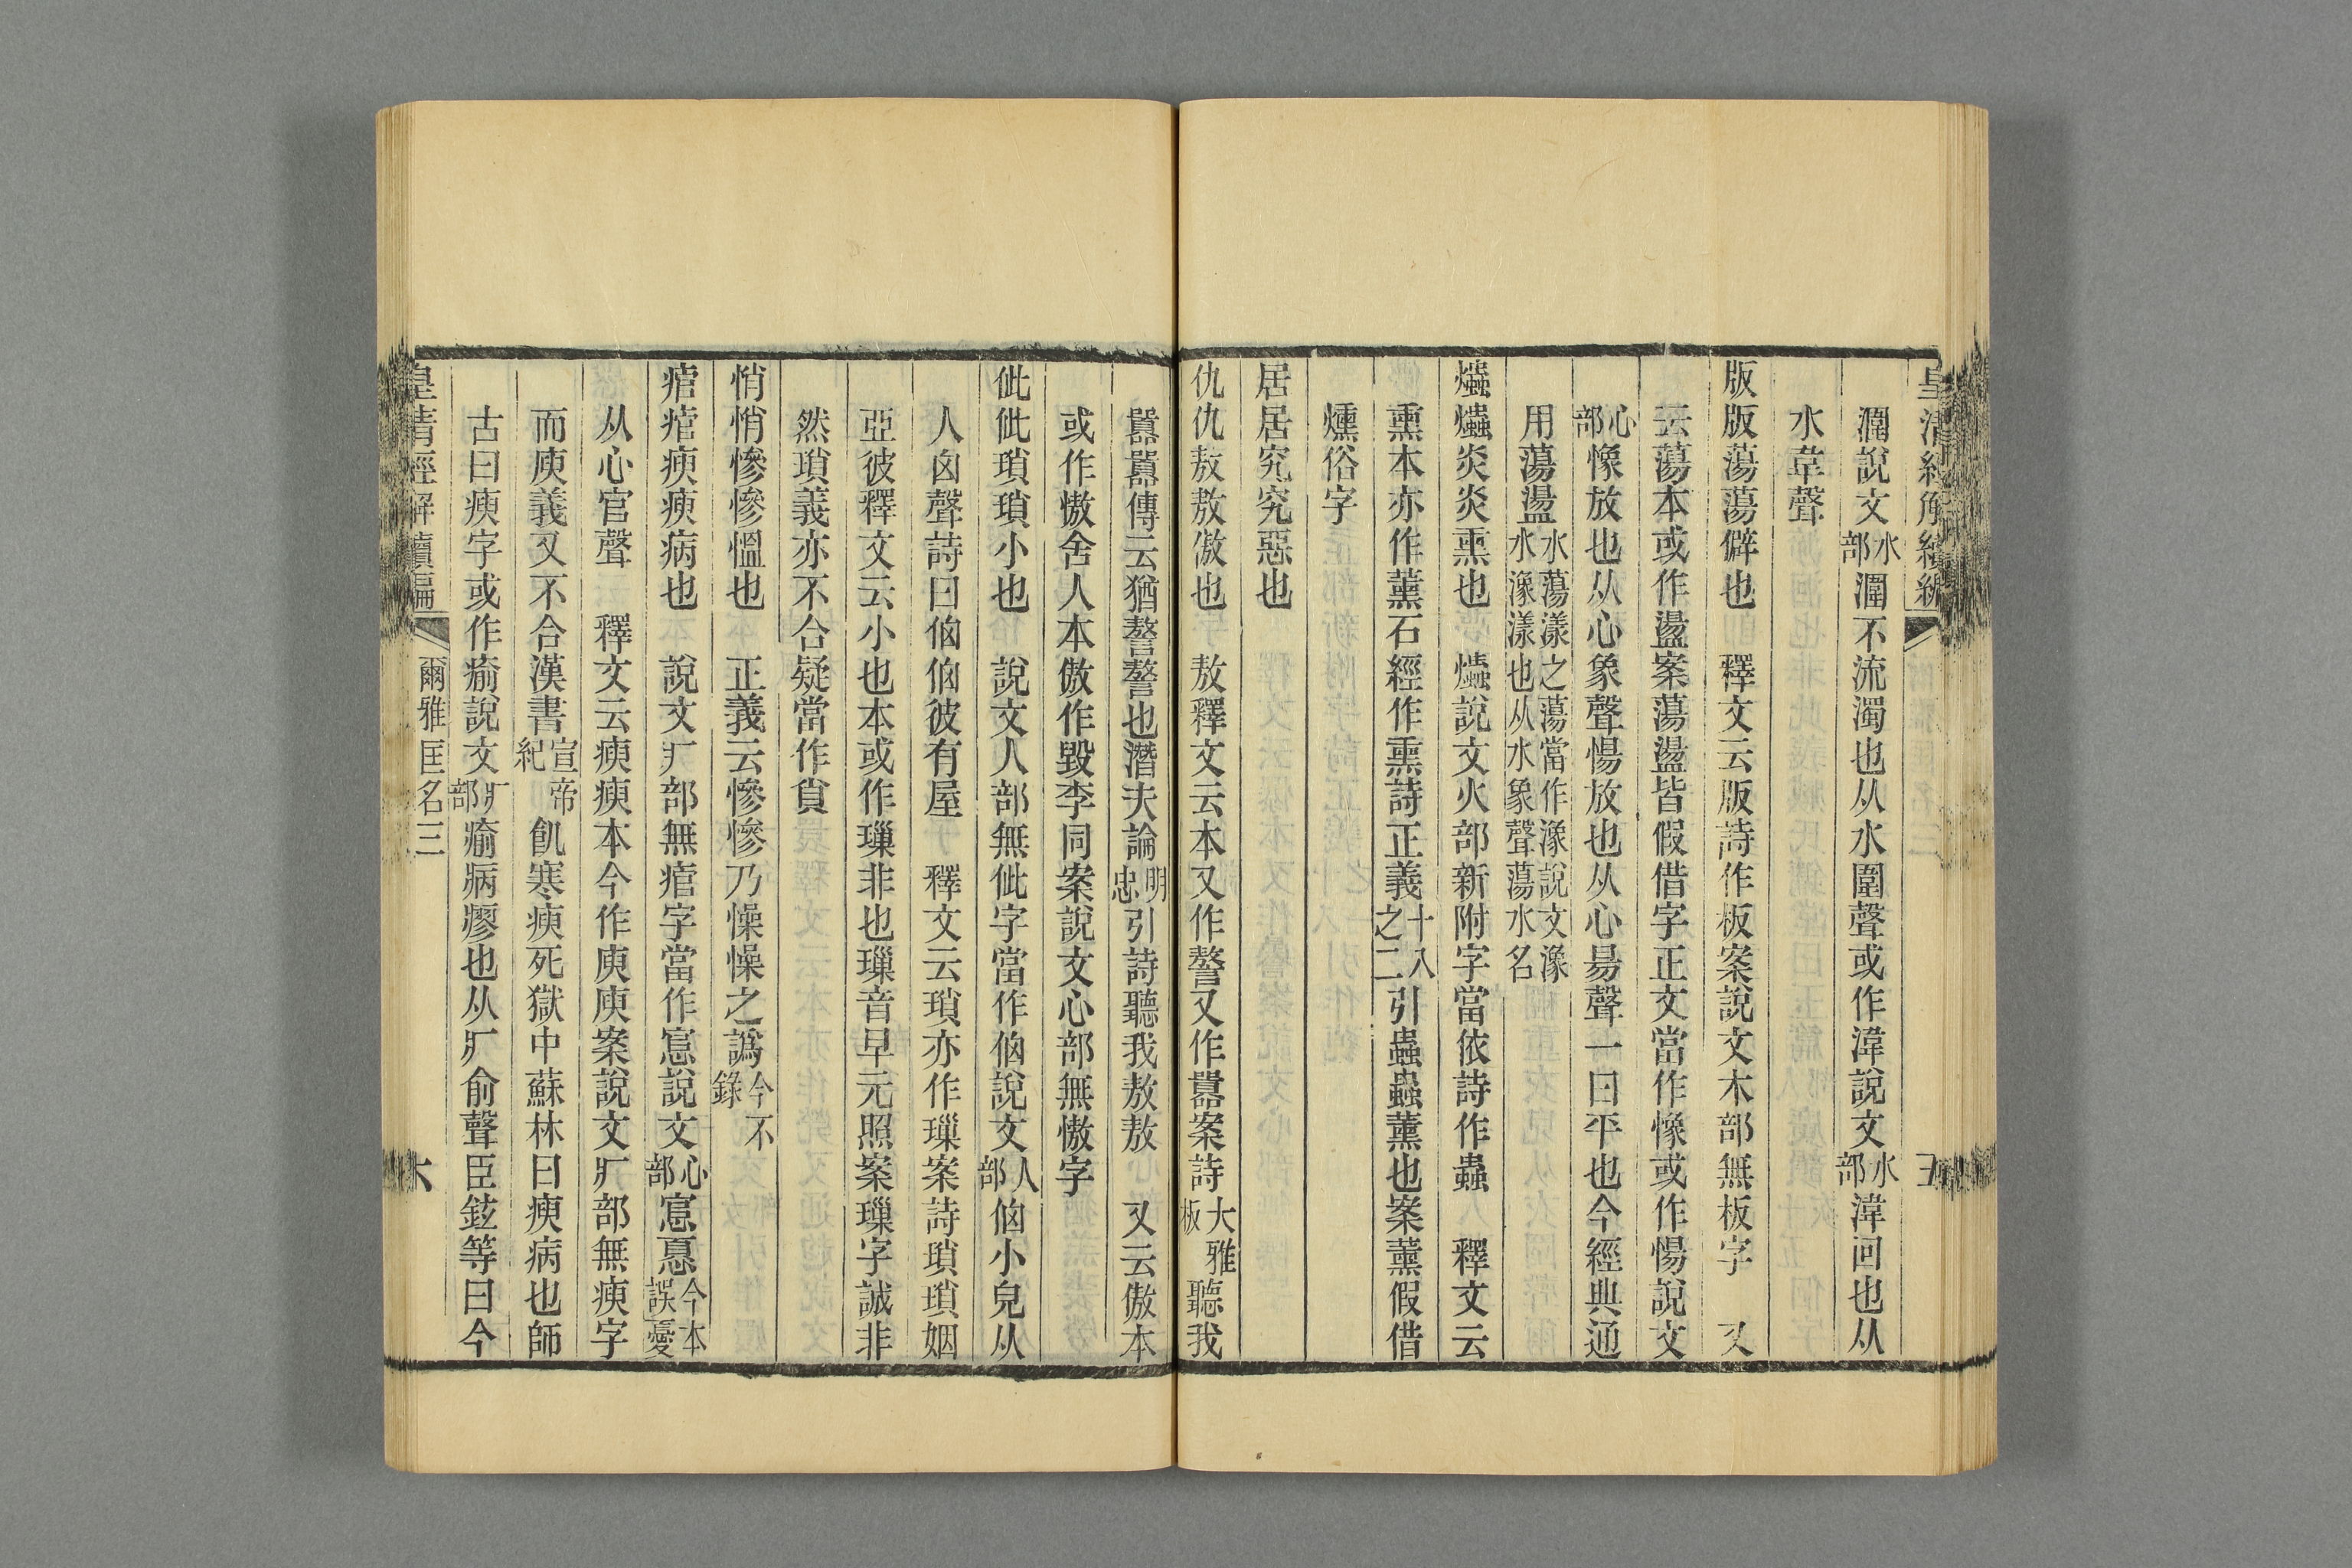 皇清經解續編
潿說文水部潿不流濁也从水圍聲或作湋說文水部湋回也从
水韋聲
版版蕩蕩僻也　釋文云版詩作板案說文木部無板字　又
云蕩本或作盪案蕩盪皆假借字正文當作憏或作愓說文
心部愓放也从心象聲愓放也从心昜聲一曰平也今經典通
用蕩盪水蕩漾之蕩當作潒說文潒水潒漾也从水象聲蕩水名
爞爞炎炎熏也　爞說文火部新附字當依詩作蟲　釋文云
熏本亦作薰石經作熏詩正義十八之二引蟲蟲薰也案薰假借
燻俗字
居居究究惡也
仇仇敖敖傲也　敖釋文云本又作謷又作嚻案詩大雅板聽我
嚻嚻傳云猶謷謷也潛夫論明忠引詩聽我敖敖　又云傲本
或作慠舍人本傲作毀李同案說文心部無慠字
佌佌瑣瑣小也　說文人部無佌字當作㑄說文人部㑄小皃从
人囟聲詩曰㑄㑄彼有屋　釋文云瑣亦作璅案詩瑣瑣姻
亞彼釋文云小也本或作璅非也璅音早元照案璅字誠非
然瑣義亦不合疑當作㪽
悄悄慘慘慍也　正義云慘慘乃懆懆之譌今不錄
痯痯瘐瘐病也　說文疒部無痯字當作悹說文心部悹𢝊今本誤憂
从心官聲　釋文云瘐瘐本今作庾庾案說文疒部無瘐字
而庾義又不合漢書宣帝紀飢寒瘐死獄中蘇林曰瘐病也師
古曰瘐字或作瘉說文疒部瘉病瘳也从疒俞聲臣鉉等曰今
皇清經解續編　爾雅匡名三　六